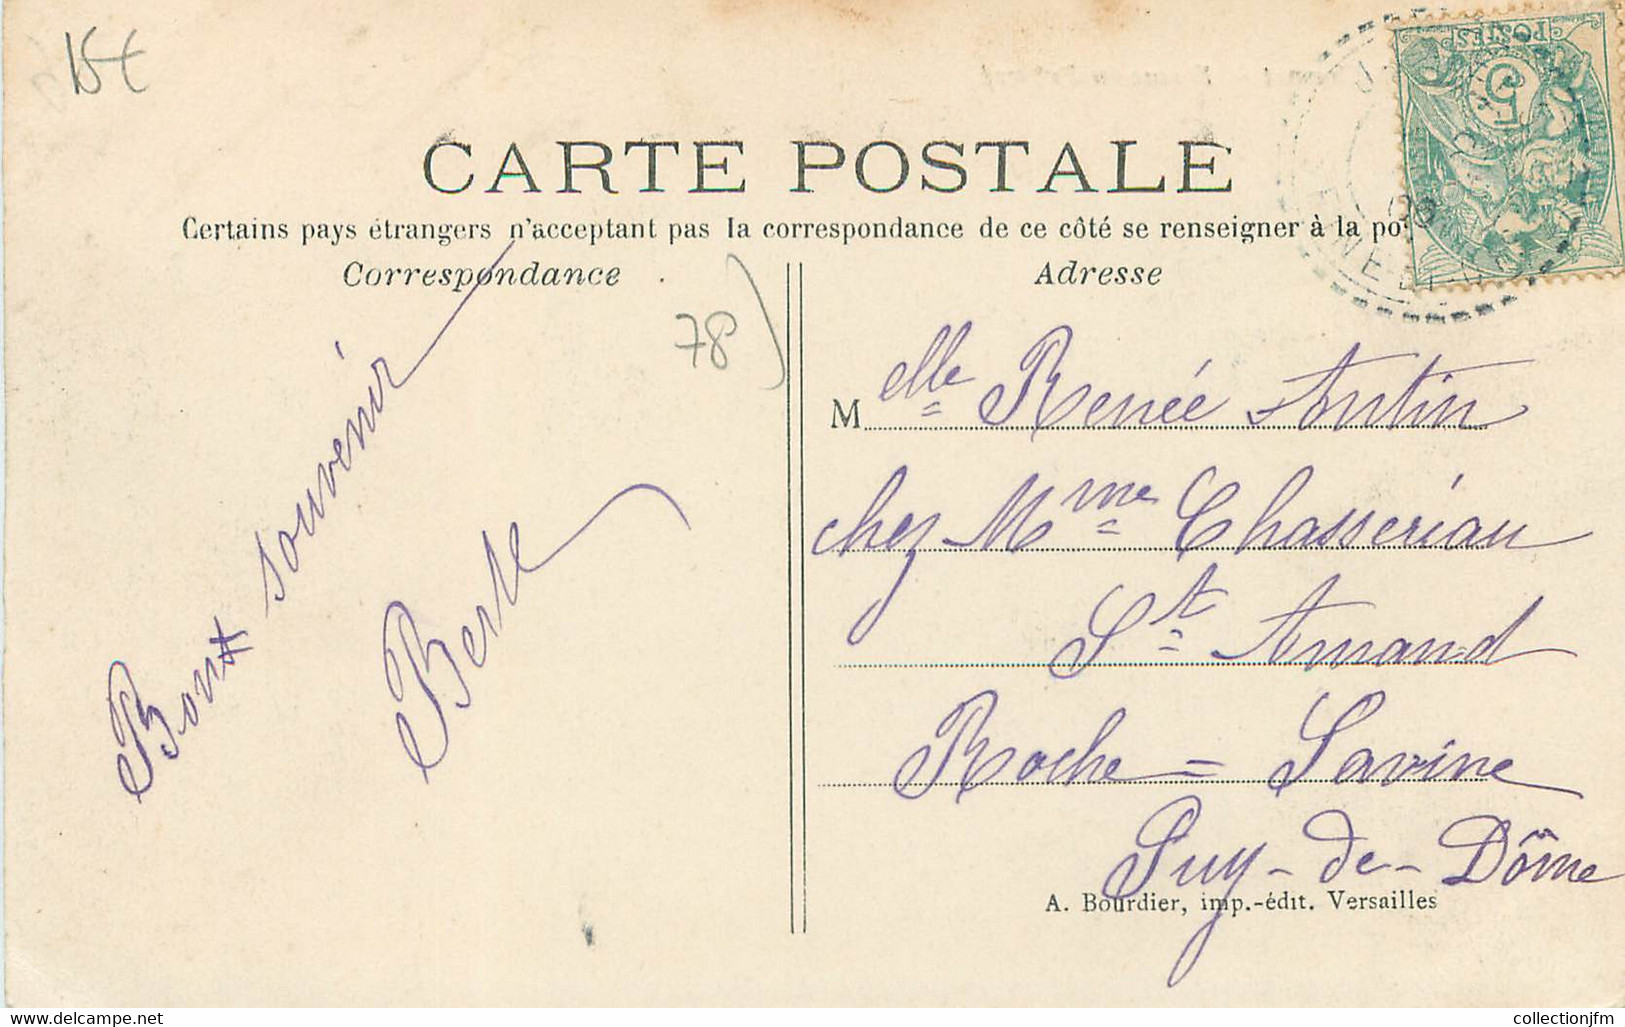 15€
CARTE POSTALE
Certains pays étrangers n'acceptant pas la correspondance de ce côté se renseigner à la po
Correspondance
Adresse
78
Bon souvenir
Berthe
Melle Renée Antin
chez Mme Chasseriau
St Amand
Roche = Savine
Puy-de-Dôme
A. Bourdier, imp.-édit. Versailles
POSTES
5
collectionjfm
www.delcampe.net